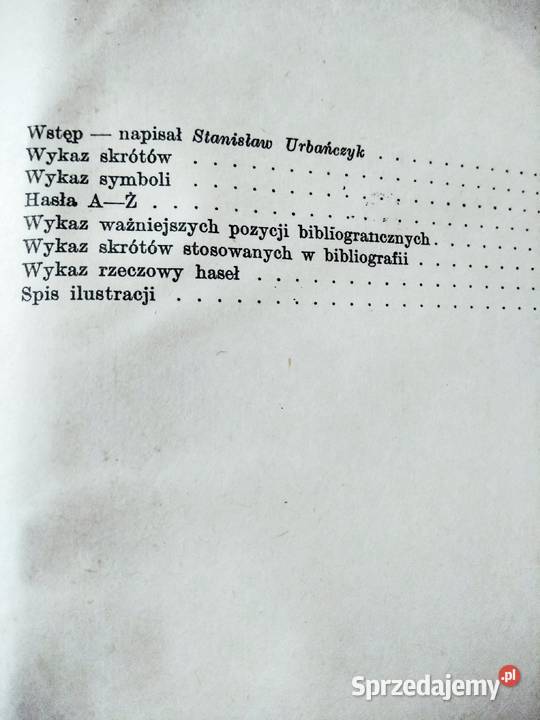 Wstęp — napisał Stanisław Urbańczyk . . . . . . . .
Wykaz skrótów . . . . . . . . . . . . . . . . . .
Wykaz symboli . . . . . . . . . . . . . . . . . .
Hasła A—Ż . . . . . . . . . . . . . . . . . . . .
Wykaz ważniejszych pozycji bibliograficznych . . . . . .
Wykaz skrótów stosowanych w bibliografii . . . . . . .
Wykaz rzeczowy haseł . . . . . . . . . . . . . . .
Spis ilustracji . . . . . . . . . . . . . . . . . . .
Sprzedajemy.pl